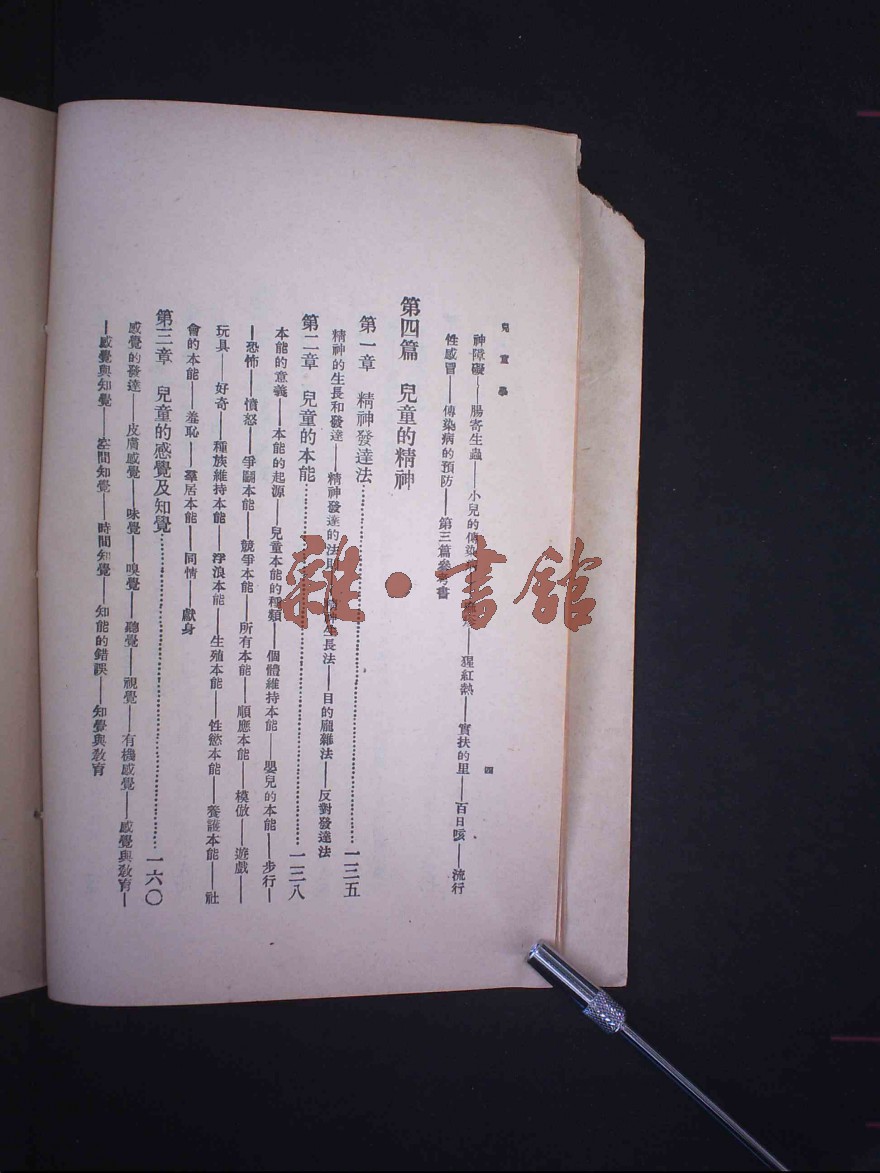 兒童學
四
神障礙——腸寄生蟲——小兒的傳染病——猩紅熱——實扶的里——百日咳——流行
性感冒——傳染病的預防——第三篇參考書
第四篇 兒童的精神
第一章 精神發達法……一三五
精神的生長和發達——精神發達的法則——精神生長法——目的龐雜法——反對發達法
第二章 兒童的本能……一三八
本能的意義——本能的起源——兒童本能的種類——個體維持本能——嬰兒的本能——步行—
—恐怖——憤怒——爭鬭本能——競爭本能——所有本能——順應本能——模倣——遊戲——
玩具——好奇——種族維持本能——浮浪本能——生殖本能——性慾本能——養護本能——社
會的本能——羞恥——羣居本能——同情——獻身
第三章 兒童的感覺及知覺……一六〇
感覺的發達——皮膚感覺——味覺——嗅覺——聽覺——視覺——有機感覺——感覺與敎育—
—感覺與知覺——空間知覺——時間知覺——知能的錯誤——知覺與敎育
雜·書館